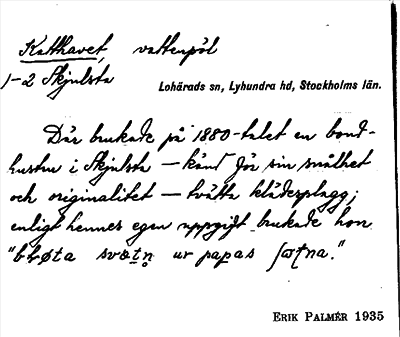 Katthavet, vattenpöl
1-2 Skjulsta
Lohärads sn, Lyhundra hd, Stockholms län.
Där brukade på 1880-talet en bond-
hustru i Skjulsta – känd för sin snålhet
och originalitet – tvätta klädesplagg;
enligt hennes egen uppgift brukade hon
"bløta svætn̥ ur papas ʃoƭna."
ERIK PALMÉR 1935